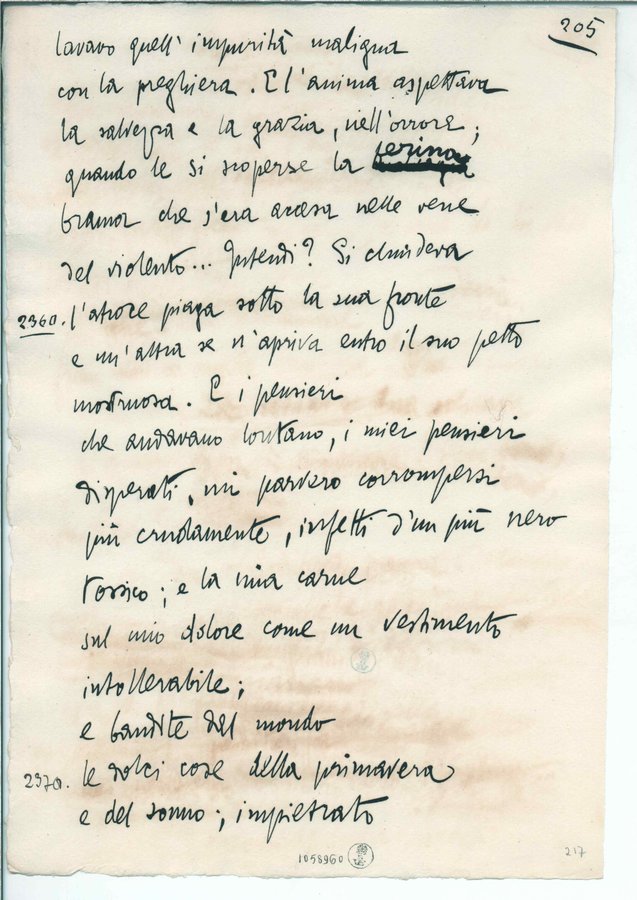 205
lavavo quell' impurità maligna
con la preghiera. E l'anima aspettava
la salvezza e la grazia, nell'orrore;
quando le si scoperse la ferina
brama che s'era accesa nelle vene
del violento... Intendi? Si chiudeva
2360. l'atroce piaga sotto la sua fronte
e un'altra se n'apriva entro il suo petto
mostruosa. E i pensieri
che andavano lontano, i miei pensieri
disperati, mi parvero corrompersi
più crudamente, infetti d'un più nero
tossico; e la mia carne
sul mio dolore come un vestimento
intollerabile;
e bandite dal mondo
2370. le dolci cose della primavera
e del sonno; impietrato
1058960
217